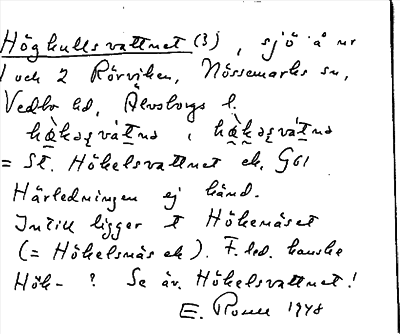 Högkullsvattnet (3), sjö å nr
1 och 2 Rörviken, Nössemarks sn,
Vedbo hd, Älvsborgs l.
= St. Hökelsvattnet ek. G61
Härledningen ej känd.
Intill ligger t Hökenäset
(= Hökelsnäs ek). F.led. kanske
Hök- ? Se äv. Hökelsvattnet!
E. 1948